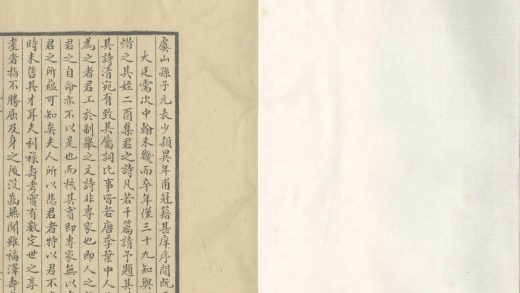 虞山孫子元表少穎異年甫冠籍甚庠序間既
大廷需次中翰未幾而卒年僅三十九知與
惜之其姪二酉集君之詩凡若干篇請予題其
其詩清宛有致其屬詞比事皆若唐季葉中人
為之者君工於制舉之文詩非專家也即人之
君之自命亦不以是也而核其實即專家無以
君之所蘊可知矣夫人所以悲君者特以君不
時未售其才耳夫利祿壽考嘗有數定世之享
耋者指不勝屈及身之後沒齒無聞雖福澤壽